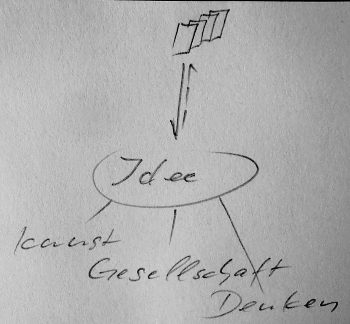 Idee
Kunst
Gesellschaft
Denken